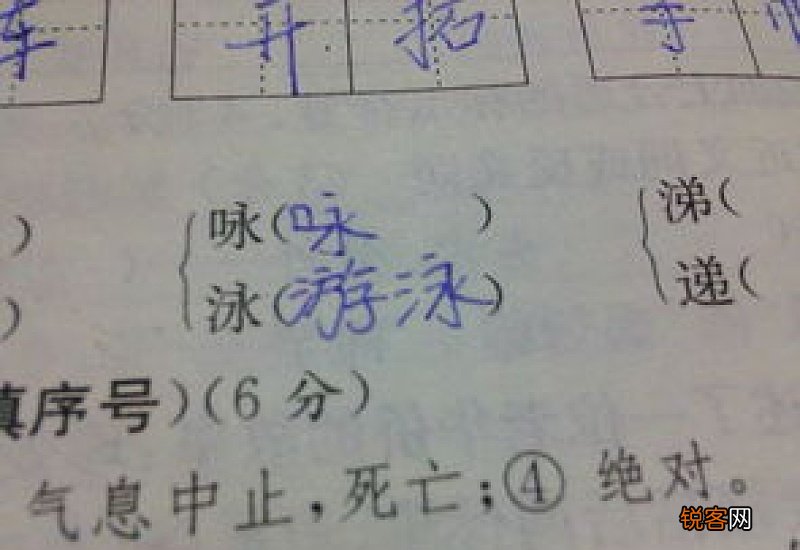 车 开拓 于
咏(咏 ) 涕(
) 泳(游泳) 递(
填序号)(6 分)
气息中止,死亡;④ 绝对。
锐客网